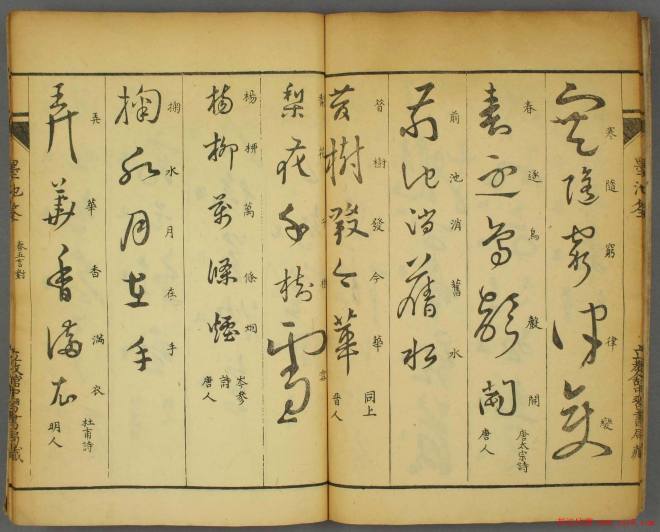 寒隨窮律變
寒隨窮律變
春逐鳥聲開
春逐鳥聲開
唐太宗詩
唐人
前池消舊水
前池消舊水
昔樹發今華
昔樹發今華
同上
晉人
梨花千樹雪
楊柳萬條烟
楊柳萬條煙
岑參詩
唐人
掬水月在手
掬水月在手
弄華香滿衣
弄華香滿衣
杜甫詩
明人
卷五言對